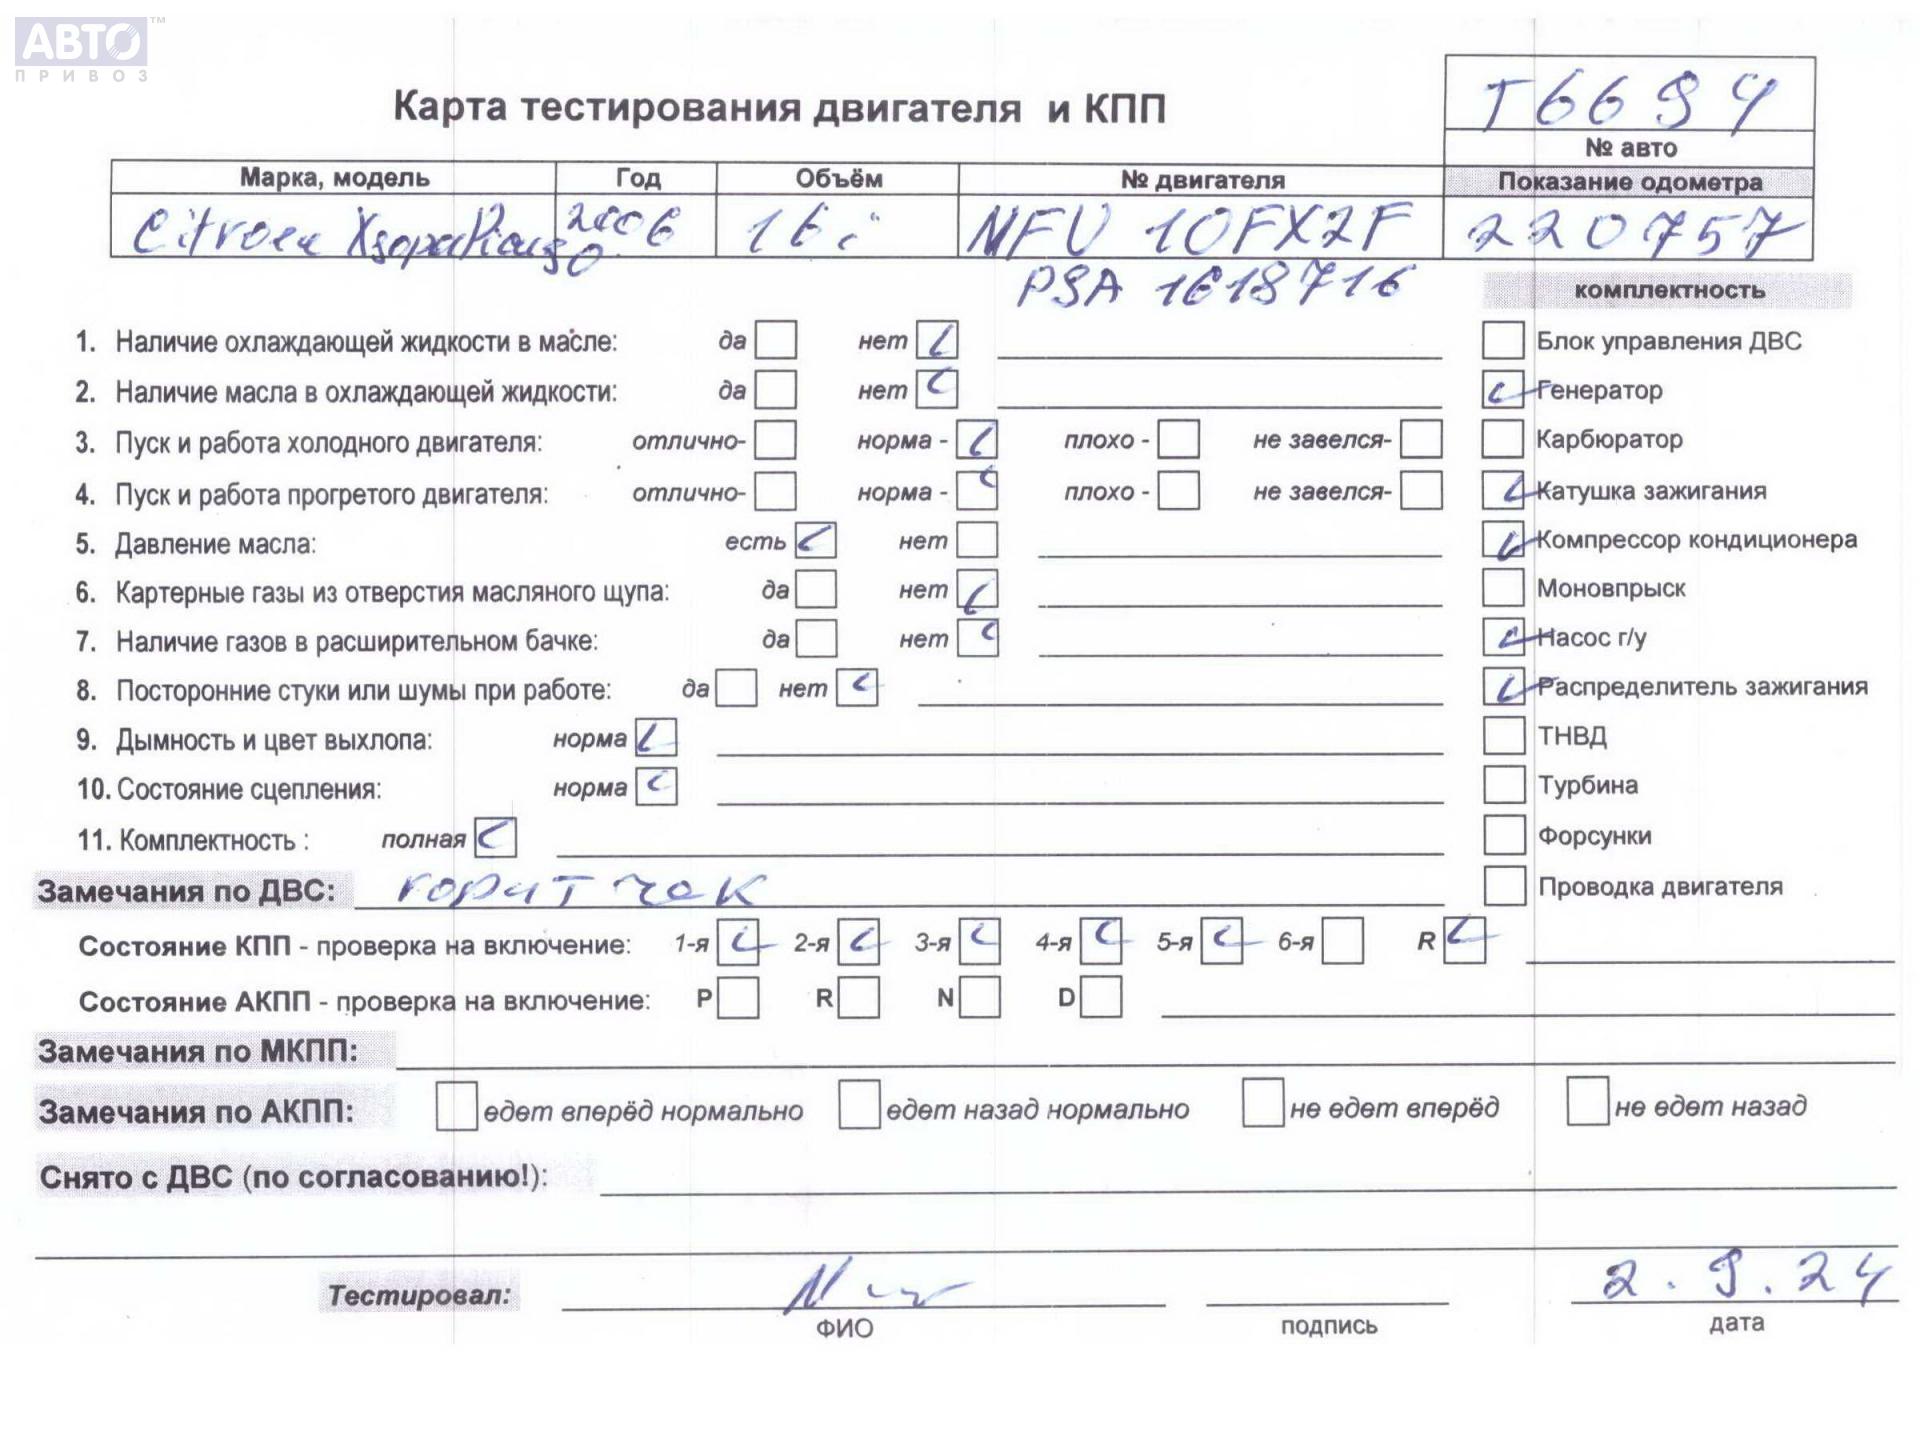 АВТО™
ПРИВОЗ
Карта тестирования двигателя и КПП
Т6694
№ авто
Марка, модель Год Объём № двигателя Показание одометра
Citroen Xsara Picasso 2006 16i NFU 10FX2F 220757
PSA 1618716
комплектность
1. Наличие охлаждающей жидкости в масле: да нет Блок управления ДВС
2. Наличие масла в охлаждающей жидкости: да нет Генератор
3. Пуск и работа холодного двигателя: отлично- норма - плохо - не завелся- Карбюратор
4. Пуск и работа прогретого двигателя: отлично- норма - плохо - не завелся- Катушка зажигания
5. Давление масла: есть нет Компрессор кондиционера
6. Картерные газы из отверстия масляного щупа: да нет Моновпрыск
7. Наличие газов в расширительном бачке: да нет Насос г/у
8. Посторонние стуки или шумы при работе: да нет Распределитель зажигания
9. Дымность и цвет выхлопа: норма ТНВД
10. Состояние сцепления: норма Турбина
11. Комплектность : полная Форсунки
Замечания по ДВС: горит чек Проводка двигателя
Состояние КПП - проверка на включение: 1-я 2-я 3-я 4-я 5-я 6-я R
Состояние АКПП - проверка на включение: P R N D
Замечания по МКПП:
Замечания по АКПП: едет вперёд нормально едет назад нормально не едет вперёд не едет назад
Снято с ДВС (по согласованию!):
Тестировал: 2.9.24
ФИО подпись дата